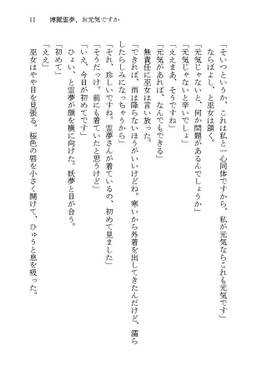 11　博麗霊夢、お元気ですか
「そいつというか、これは私と一心同体ですから、私が元気ならこれも元気です」
ならばよし、と巫女は頷く。
「元気じゃないと、何か問題があるんでしょうか」
「元気じゃないと辛いでしょ」
「ええまあ、そうですね」
「元気があれば、なんでもできる」
無責任に巫女は言い放った。
「できれば、雨は降らないほうがいいけどね。寒いから外着を出してきたんだけど、濡ら
したらしみになっちゃうから」
「それ、珍しいですね。霊夢さんが着ているの、初めて見ました」
「そうだっけ。前にも着ていたと思うけど」
「いえ、今日が初めてです」
ひょい、と霊夢が顔を横に向けた。妖夢と目が合う。
「初めて」
「ええ」
巫女はやや目を見張る。桜色の唇を小さく開けて、ひゅうと息を吸った。